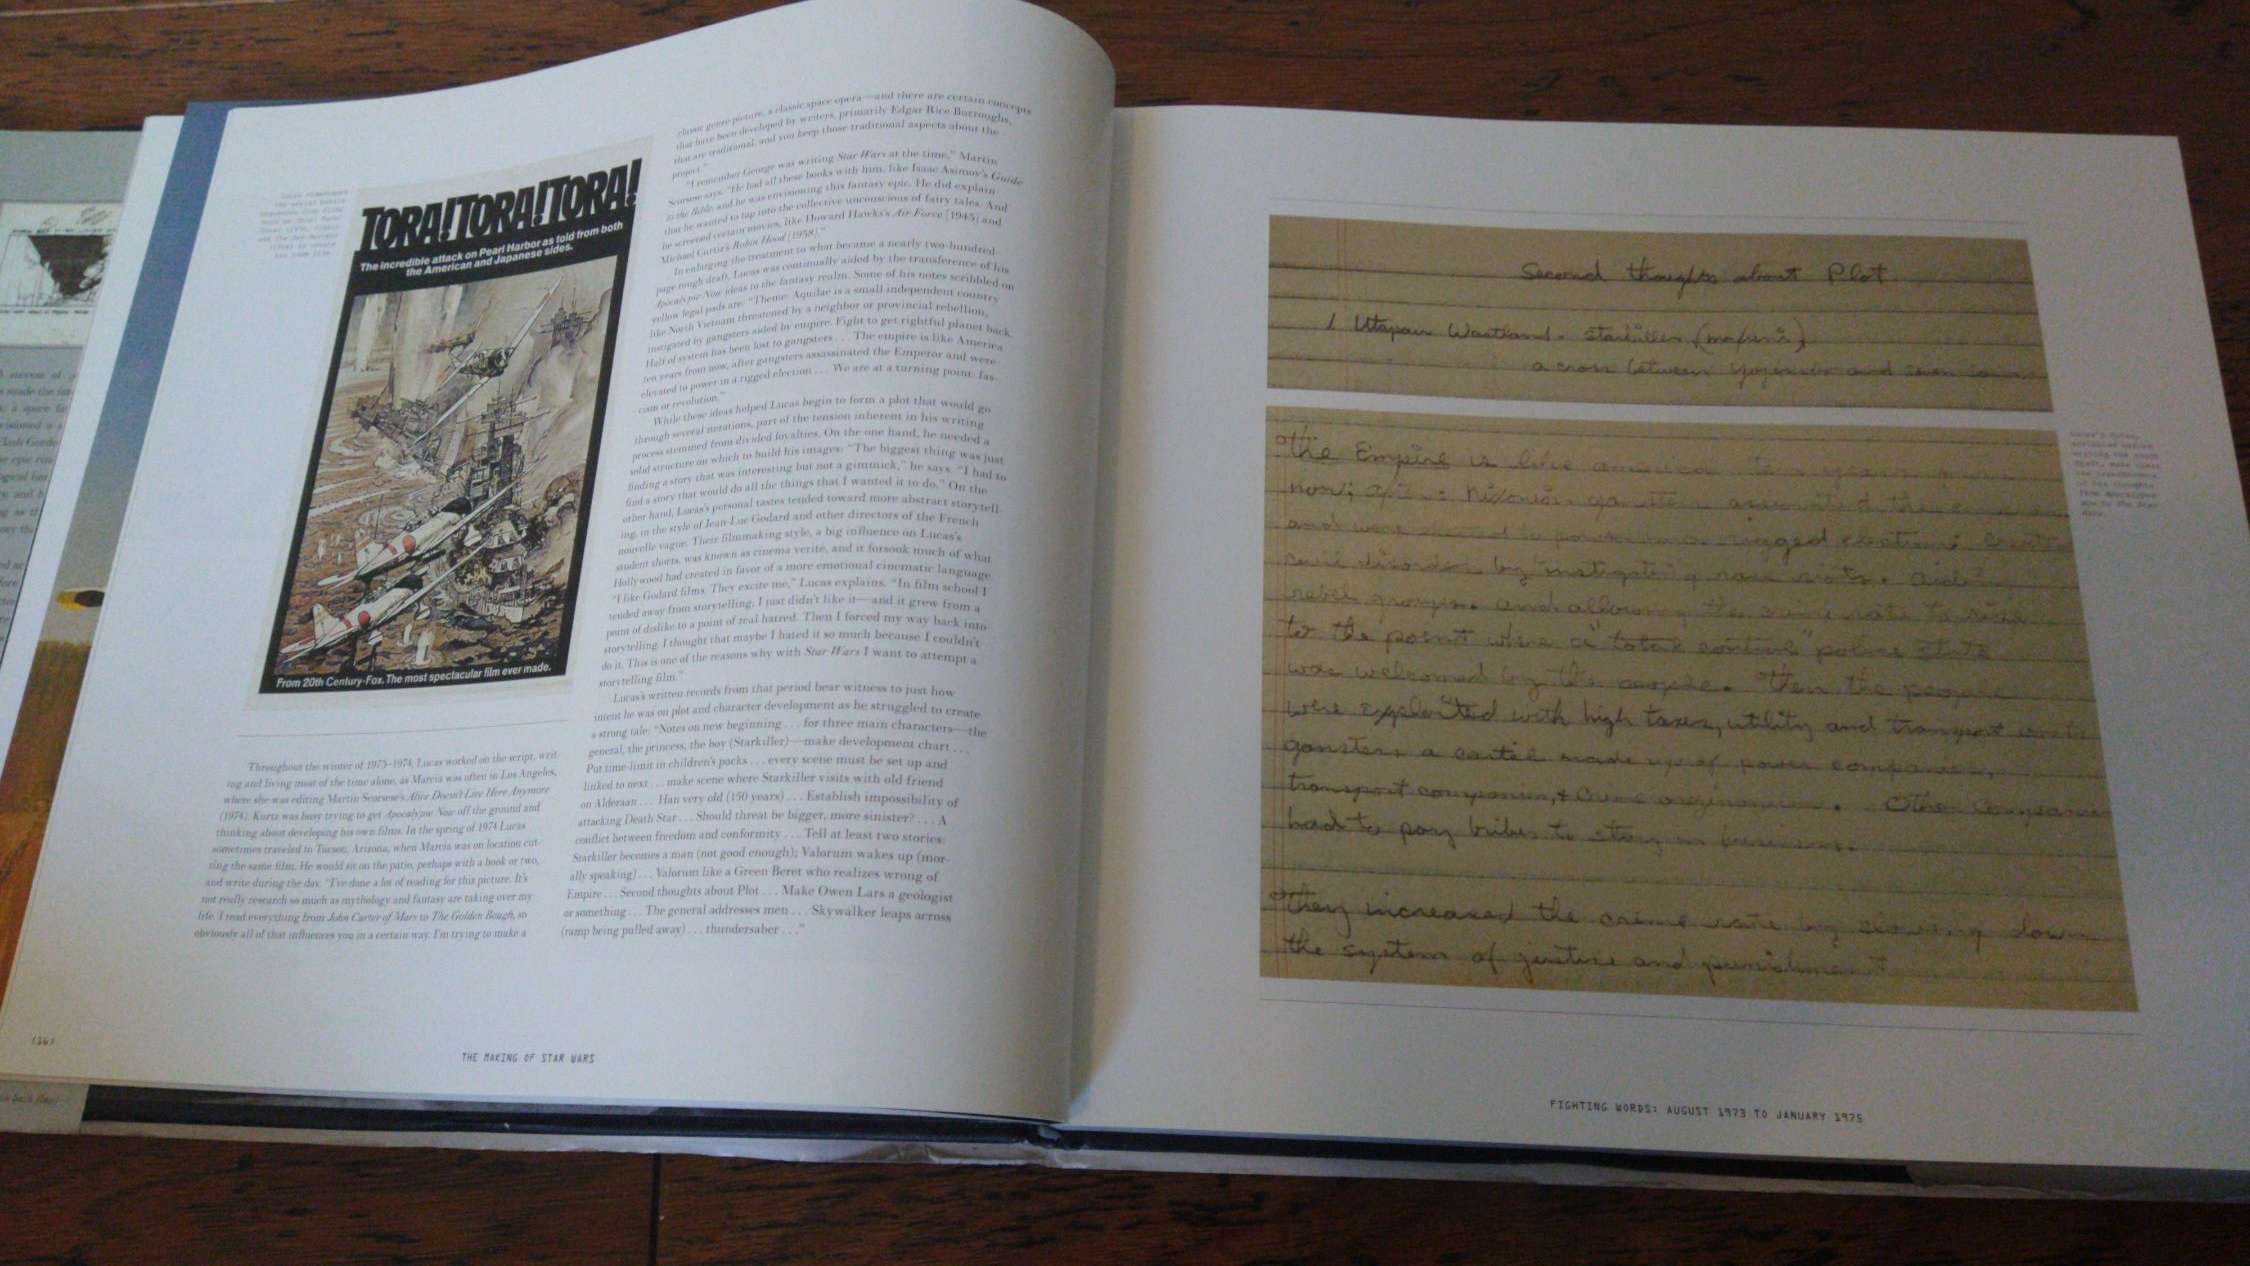 TORA! TORA! TORA!
The incredible attack on Pearl Harbor as told from both
the American and Japanese sides.
From 20th Century-Fox. The most spectacular film ever made.
Throughout the winter of 1973–1974, Lucas worked on the script, writ-
ing and living most of the time alone, as Marcia was often in Los Angeles,
where she was editing Martin Scorsese's Alice Doesn't Live Here Anymore
(1974). Kurtz was busy trying to get Apocalypse Now off the ground and
thinking about developing his own films. In the spring of 1974 Lucas
sometimes traveled to Tucson, Arizona, when Marcia was on location cut-
ting the same film. He would sit on the patio, perhaps with a book or two,
and write during the day. "I've done a lot of reading for this picture. It's
not really research so much as mythology and fantasy are taking over my
life. I read everything from John Carter of Mars to The Golden Bough, so
obviously all of that influences you in a certain way. I'm trying to make a
classic genre picture, a classic space opera—and there are certain concepts
that have been developed by writers, primarily Edgar Rice Burroughs,
that are traditional, and you keep those traditional aspects about the
project."
"I remember George was writing Star Wars at the time," Martin
Scorsese says. "He had all these books with him, like Isaac Asimov's Guide
to the Bible, and he was envisioning this fantasy epic. He did explain
that he wanted to tap into the collective unconscious of fairy tales. And
he screened certain movies, like Howard Hawks's Air Force [1943] and
Michael Curtiz's Robin Hood [1938]."
In enlarging the treatment to what became a nearly two-hundred-
page rough draft, Lucas was continually aided by the transference of his
Apocalypse Now ideas to the fantasy realm. Some of his notes scribbled on
yellow legal pads are: "Theme: Aquilae is a small independent country
like North Vietnam threatened by a neighbor or provincial rebellion,
instigated by gangsters aided by empire. Fight to get rightful planet back.
Half of system has been lost to gangsters . . . The empire is like America
ten years from now, after gangsters assassinated the Emperor and were
elevated to power in a rigged election . . . We are at a turning point: fas-
cism or revolution."
While these ideas helped Lucas begin to form a plot that would go
through several iterations, part of the tension inherent in his writing
process stemmed from divided loyalties. On the one hand, he needed a
solid structure on which to build his images: "The biggest thing was just
finding a story that was interesting but not a gimmick," he says. "I had to
find a story that would do all the things that I wanted it to do." On the
other hand, Lucas's personal tastes tended toward more abstract storytell-
ing, in the style of Jean-Luc Godard and other directors of the French
nouvelle vague. Their filmmaking style, a big influence on Lucas's
student shorts, was known as cinema verité, and it forsook much of what
Hollywood had created in favor of a more emotional cinematic language.
"I like Godard films. They excite me," Lucas explains. "In film school I
tended away from storytelling; I just didn't like it—and it grew from a
point of dislike to a point of real hatred. Then I forced my way back into
storytelling. I thought that maybe I hated it so much because I couldn't
do it. This is one of the reasons why with Star Wars I want to attempt a
storytelling film."
Lucas's written records from that period bear witness to just how
intent he was on plot and character development as he struggled to create
a strong tale: "Notes on new beginning . . . for three main characters—the
general, the princess, the boy (Starkiller)—make development chart . . .
Put time-limit in children's packs . . . every scene must be set up and
linked to next . . . make scene where Starkiller visits with old friend
on Alderaan . . . Han very old (150 years) . . . Establish impossibility of
attacking Death Star . . . Should threat be bigger, more sinister? . . . A
conflict between freedom and conformity . . . Tell at least two stories:
Starkiller becomes a man (not good enough); Valorum wakes up (mor-
ally speaking) . . . Valorum like a Green Beret who realizes wrong of
Empire . . . Second thoughts about Plot . . . Make Owen Lars a geologist
or something . . . The general addresses men . . . Skywalker leaps across
(ramp being pulled away) . . . thundersaber . . ."
(26)
THE MAKING OF STAR WARS
Second thoughts about Plot
1 Utapau Wasteland. Starkiller
a cross between and
the Empire is like america ten years from
now;
and were to power in a rigged election;
civil disorder by instigating race riots. aid
rebel groups. and allowing the crime rate to rise
to the point where a "total control" police state
was welcomed by the people. Then the people
were exploited with high taxes, utility and transport costs
gansters a cartel made up of power companies,
transport companies, + Crime Other companies
had to pay bribes to stay in business.
they increased the crime rate by slowing down
the system of justice and punishment
FIGHTING WORDS: AUGUST 1973 TO JANUARY 1975